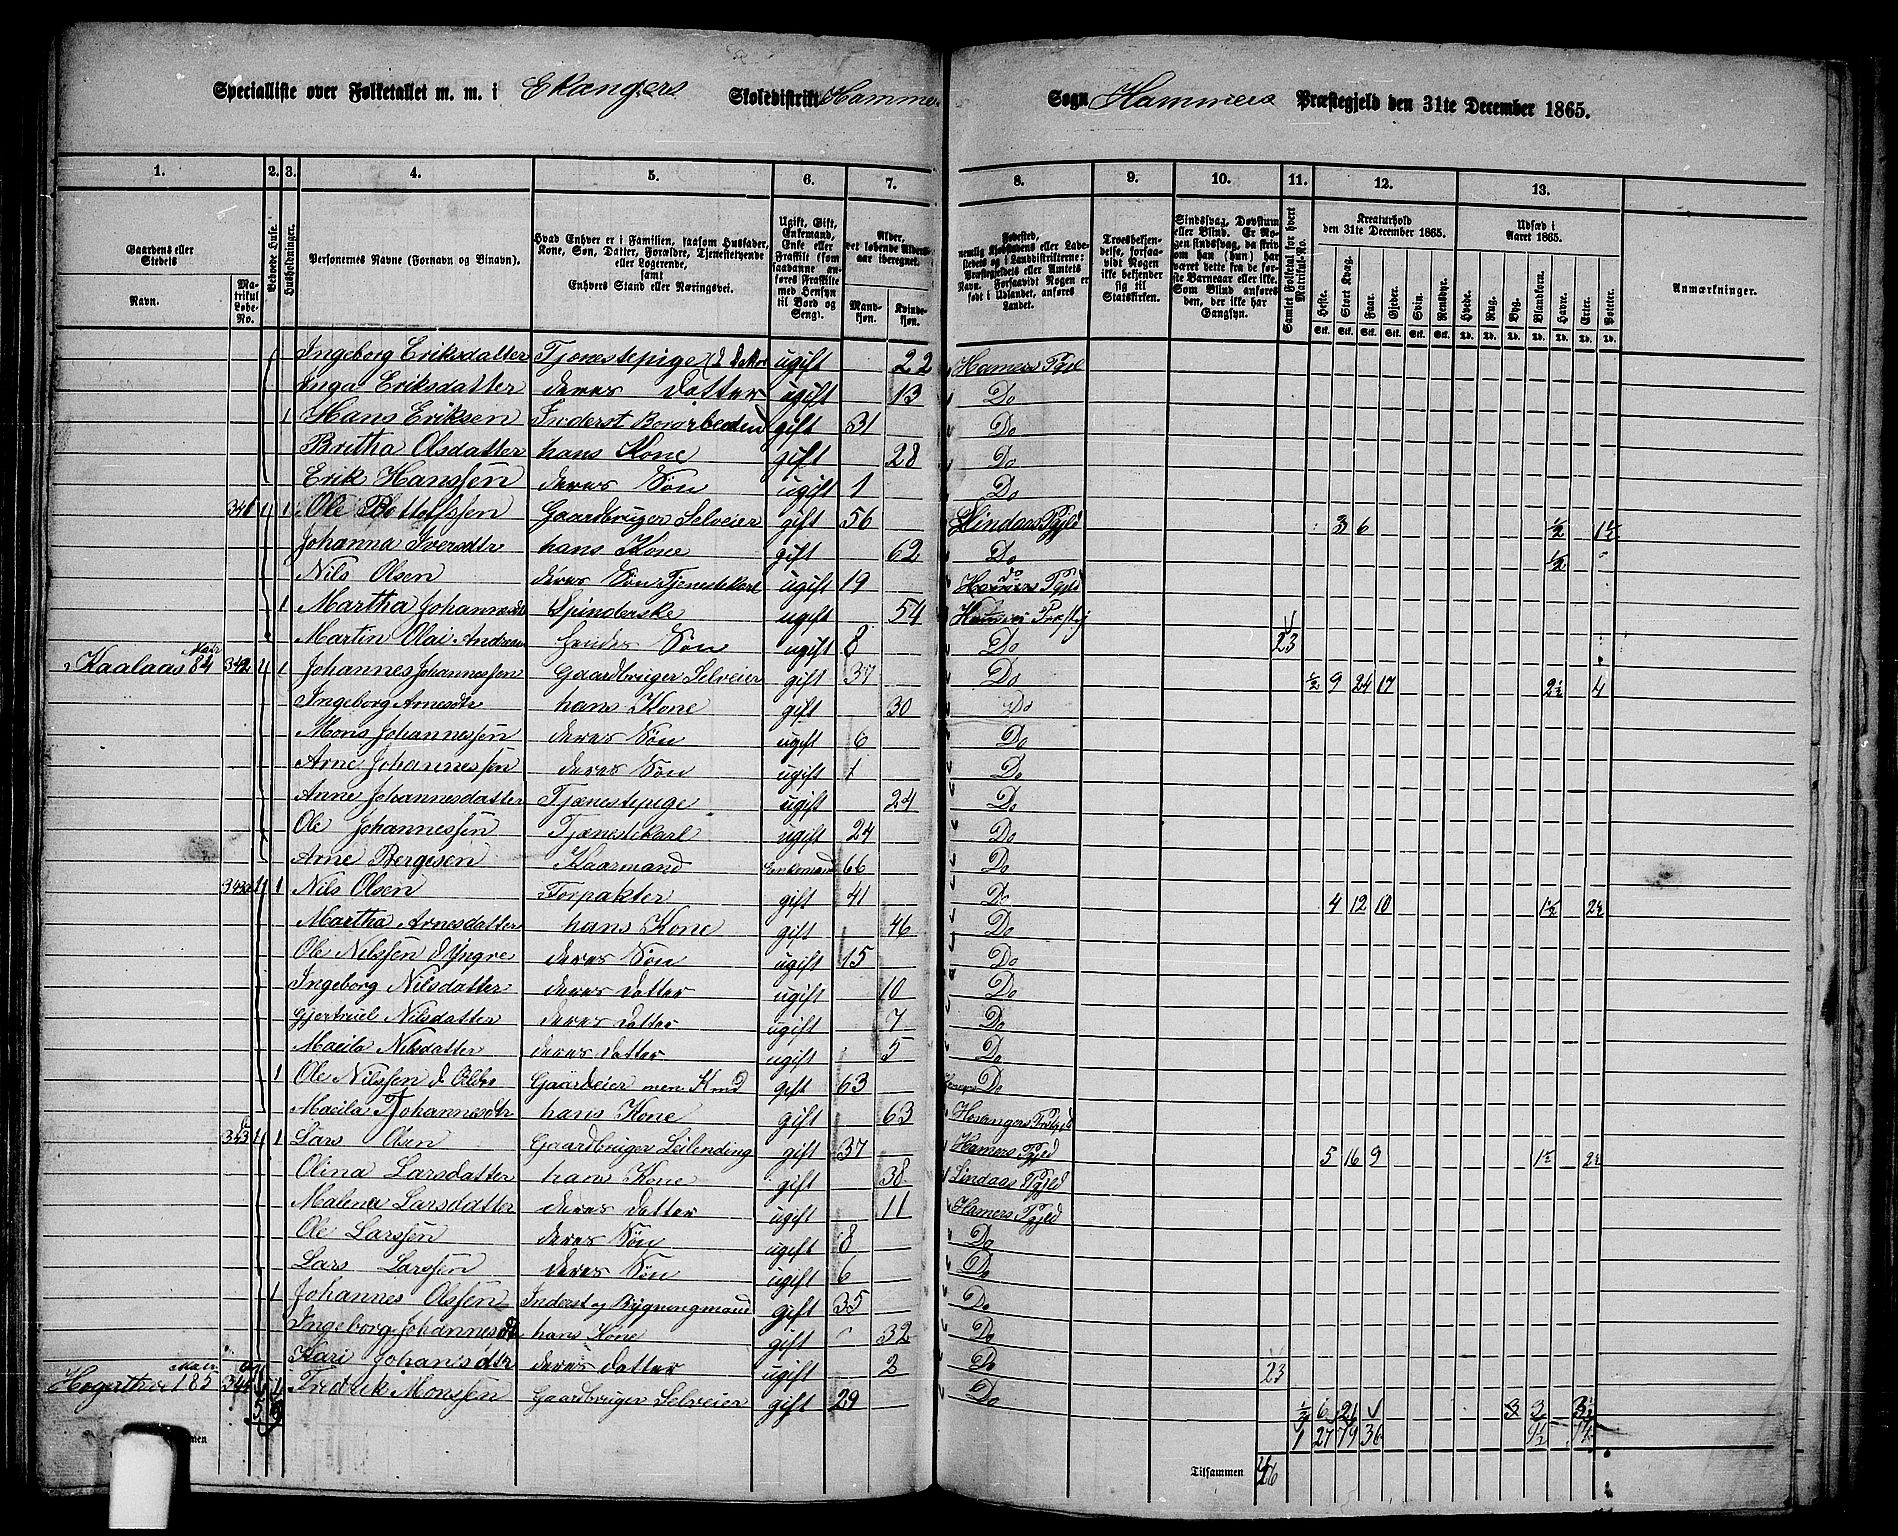 Specialliste over Folketallet m. m. i Ekangers Skoledistrikt Hammers Sogn Hammers Præstegjeld den 31te December 1865.
1. 2. 3. 4. 5. 6. 7. 8. 9. 10. 11. 12. 13.
Gaardens eller Stedets
Navn.
Matrikul Løbe-No.
Beboede Huse.
Husholdninger.
Personernes Navne (Fornavn og Binavn).
Hvad Enhver er i Familien, saasom Husfader, Kone, Søn, Datter, Forældre, Tjenestetyende eller Logerende, samt Enhvers Stand eller Næringsvei.
Ugift, Gift, Enkemand, Enke eller Fraskilt (som saadanne anføres Fraskilte med Hensyn til Bord og Seng).
Alder, det løbende Alders-aar iberegnet.
Mandkjøn. Kvindekjøn.
Fødested,
Troesbekjendelse, forsaavidt Nogen ikke bekjender sig til Statskirken.
Sindssvag, Døvstum eller Blind. Er Nogen sindssvag, da skrives om han (hun) har været dette fra de første Barneaar eller ikke. Som Blind anføres den, der ikke har Gangsyn.
Samlet Folketal for hvert Matrikul-No.
Kreaturhold den 31te December 1865.
Heste. Stort Kvæg. Faar. Gjeder. Svin. Rensdyr.
Udsæd i Aaret 1865.
Hvede. Rug. Byg. Blandkorn. Havre. Erter. Poteter.
Anmærkninger.
Ingeborg Eriksdatter Tjenestepige ugift 22 Hamers Pgjl
Inga Eriksdatter deres Datter ugift 13 Do
1 Hans Eriksen Inderst gift 31 Do
Britha Olsdatter hans Kone gift 28 Do
Erik Hanssen deres Søn ugift 1 Do
341 1 1 Ole Bottolfssen Gaardbruger Selveier gift 56 Lindaas Pgjld 3 6 ½ 1½
Johanna Iversdtr hans Kone gift 62 Do ½
Nils Olsen deres Søn Tjenestekarl ugift 19 Hamers Pgjld
1 Martha Johannesdt Spinderske ugift 54 Hamers Præstgj
Martin Olai Andreasen hendes Søn ugift 8 Do 23
Kaalaas 84 342 1 1 Johannes Johannessen Gaardbruger Selveier gift 37 Do ½ 9 24 17 2½ 4
Ingeborg Arnesdtr hans Kone gift 30 Do
Mons Johannessen deres Søn ugift 6 Do
Arne Johannessen deres Søn ugift 1 Do
Anne Johannesdatter Tjænestepige ugift 24 Do
Ole Johannessen Tjænestekarl ugift 24 Do
Arne Bergesen Kaarmand Enkemand 66 Do
343a 1 1 Nils Olsen Forpakter gift 41 Do 4 12 10 1½ 2½
Martha Arnesdatter hans Kone gift 46 Do
Ole Nilssen d Yngre deres Søn ugift 15 Do
Ingeborg Nilsdatter deres Datter ugift 10 Do
Gjertrud Nilsdatter deres Datter ugift 7 Do
Macila Nilsdatter deres Datter ugift 5 Do
1 Ole Nilssen d Ældre Gaardeier men Kmd gift 63 Do
Macila Johannesdtr hans Kone gift 63 Hosangers Prstgjld
343b 1 1 Lars Olsen Gaardbruger Leilending gift 37 Hamers Pgjld 5 16 9 1½ 2½
Olina Larsdatter hans Kone gift 38 Lindaas Pgjld
Malena Larsdatter deres Datter ugift 11 Hamers Pgjld
Ole Larssen deres Søn ugift 8 Do
Lars Larssen deres Søn ugift 6 Do
1 Johannes Olssen Inderst og Bygningsmand gift 35 Do
Ingeborg Johannesdt hans Kone gift 32 Do
Kari Johanisdtr deres Datter ugift 2 Do 23
185 344 1 1 Fredrik Monssen Gaardbruger Selveier gift 29 Do ½ 6 21 3 3 3½
1 27 79 36
Tilsammen 46